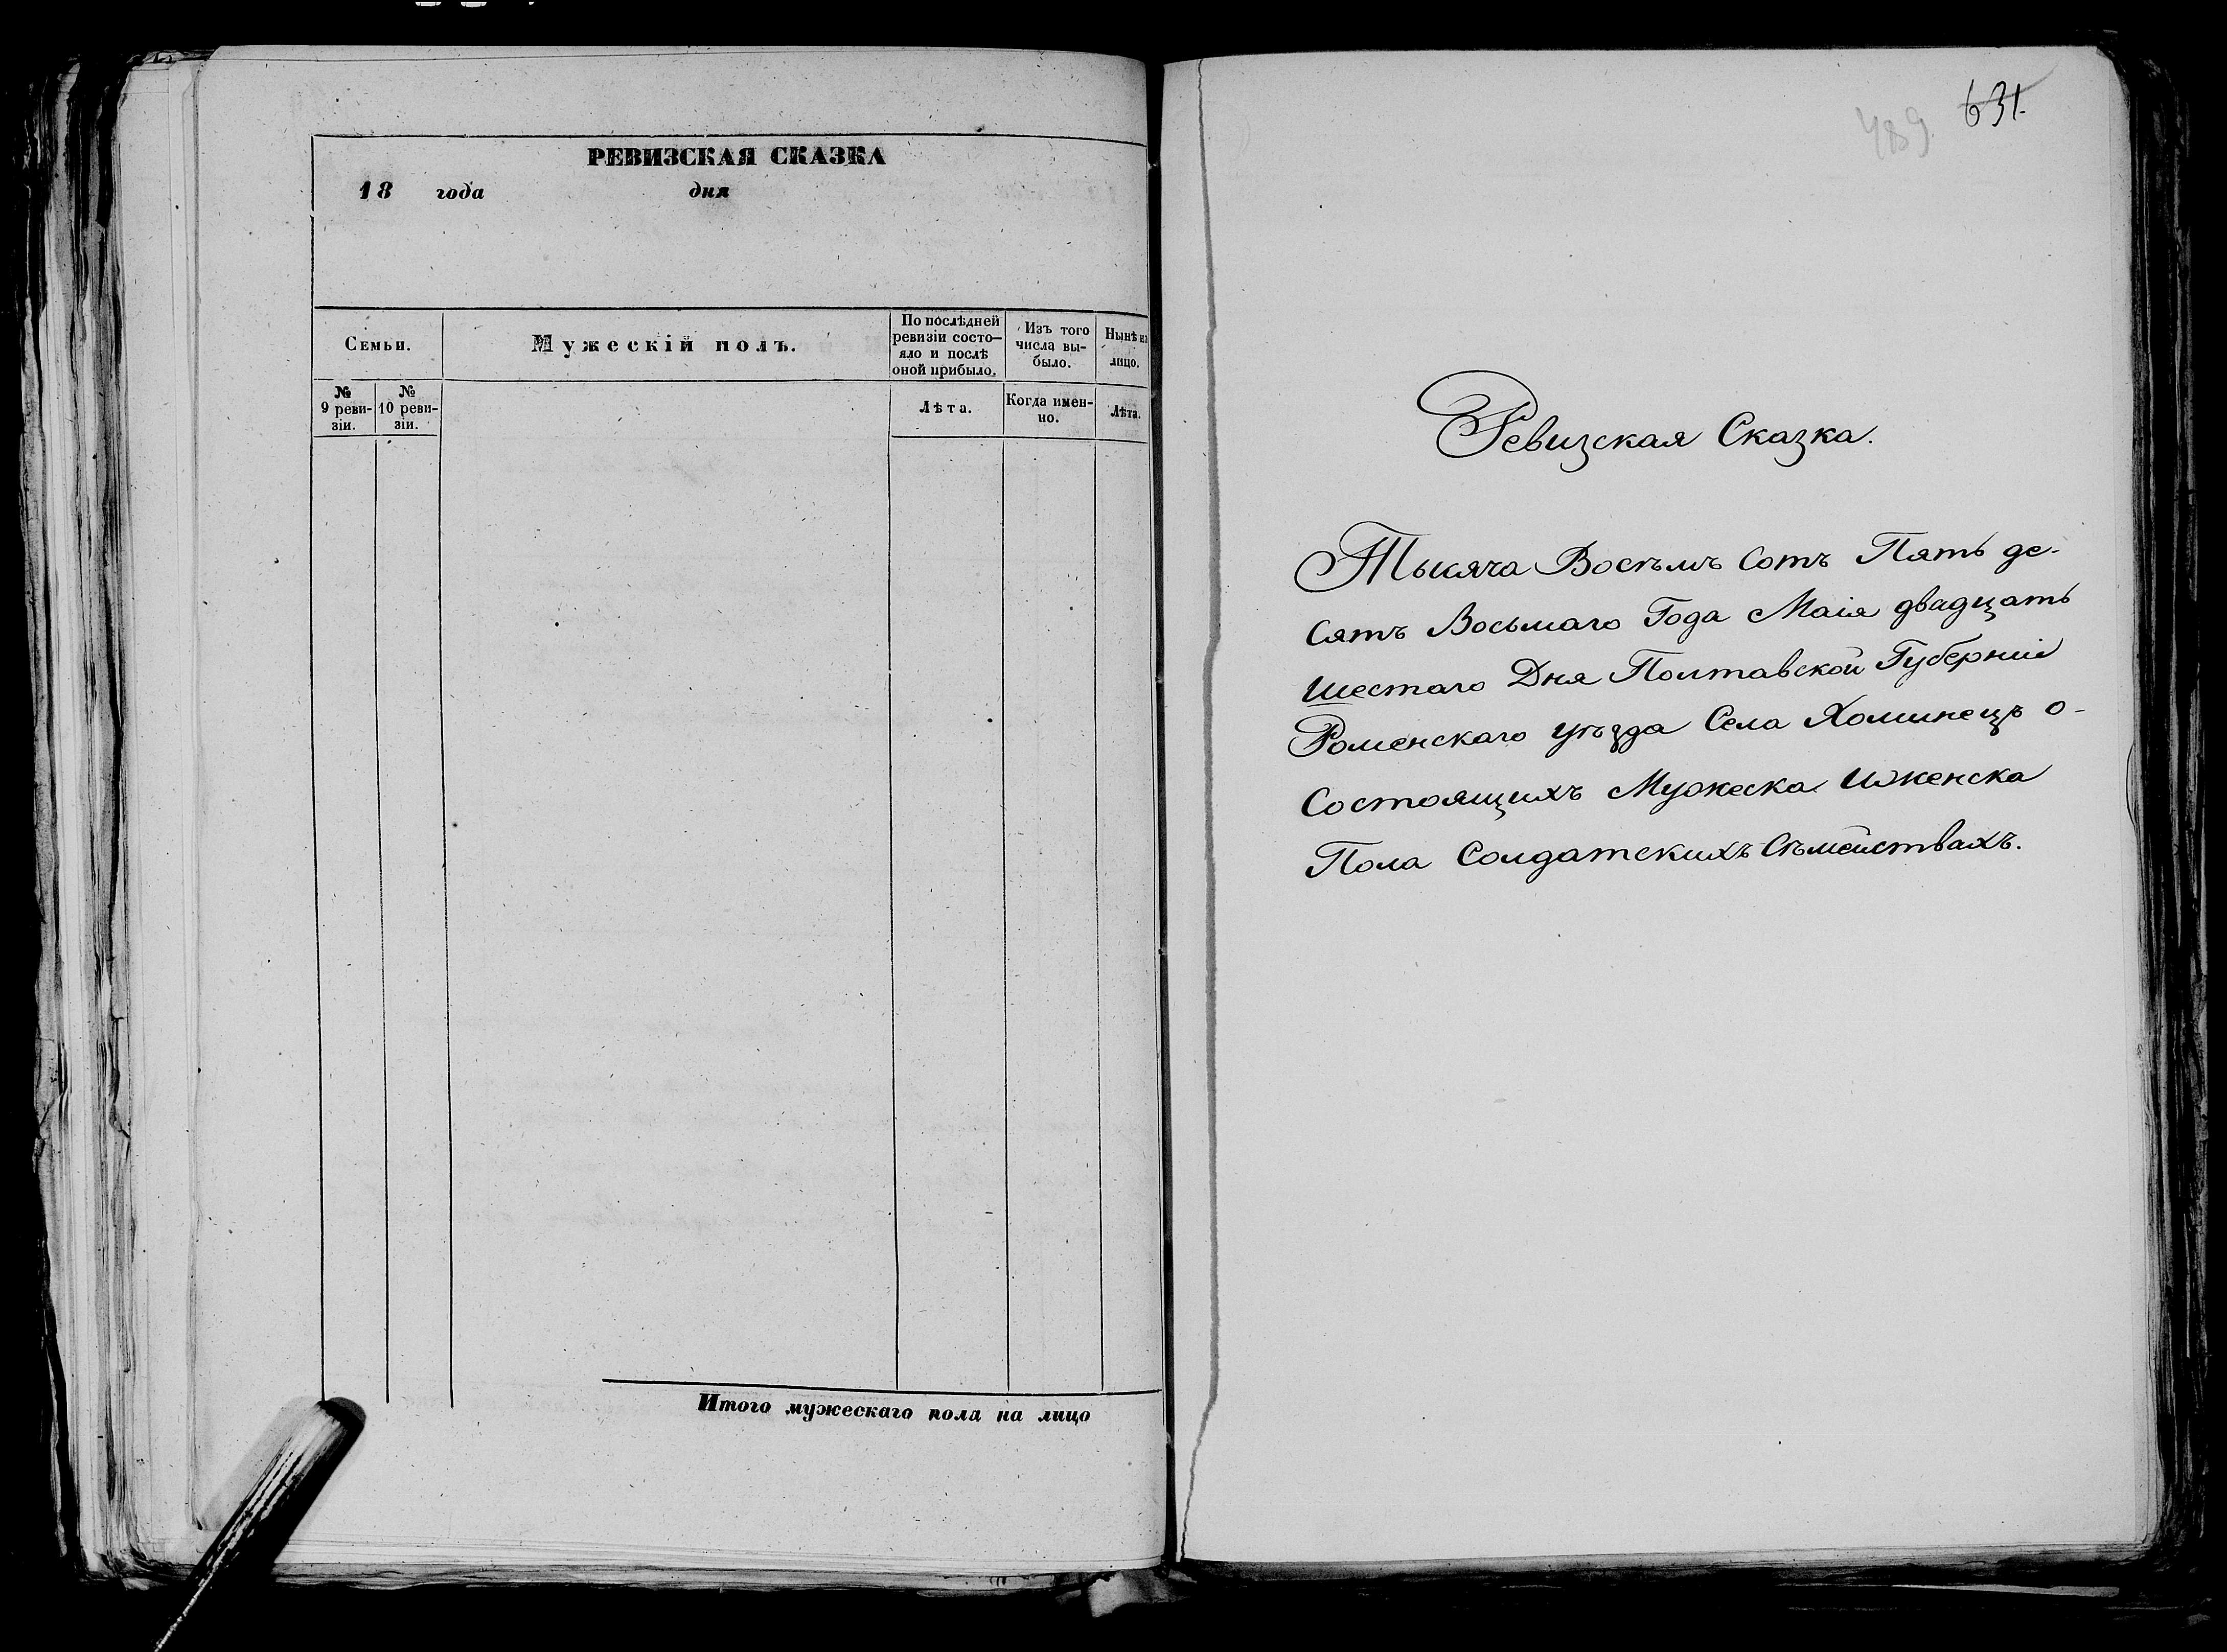 РЕВИЗСКАЯ СКАЗКА
18 года дня
Семьи.
Мужескій полъ.
По послѣдней
ревизіи состо-
яло и послѣ
оной прибыло.
Изъ того
числа вы-
было.
Нынѣ на
лицо.
№
9 реви-
зіи.
№
10 реви-
зіи.
Лѣта.
Когда имен-
но.
Лѣта.
Итого мужескаго пола на лицо
489. 631.
Ревизская Сказка.
Тысяча Восѣмъ Сотъ Пять де-
сятъ Восьмаго Года Маія двадцать
шестаго Дня Полтавской Губерніи
Роменскаго уѣзда Села Хоминецъ о-
Состоящихъ Мужеска Иженска
Пола Солдатскихъ Сѣмействахъ.